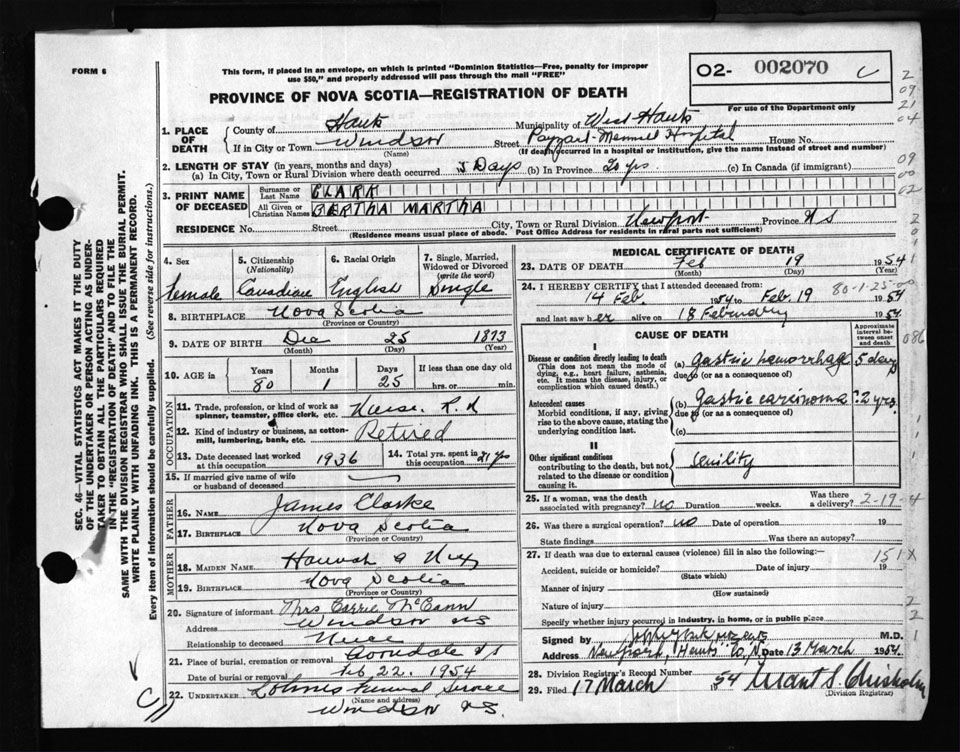 FORM 6
This form, if placed in an envelope, on which is printed "Dominion Statistics—Free, penalty for improper
use $50," and properly addressed will pass through the mail "FREE"
PROVINCE OF NOVA SCOTIA—REGISTRATION OF DEATH
O2- 002070 C
For use of the Department only
2
09
21
04
09
00
02
1. PLACE OF DEATH
County of Hants Municipality of West Hants
If in City or Town Windsor Street Payzant Memorial Hospital House No.
(Name) (If death occurred in a hospital or institution, give the name instead of street and number)
2. LENGTH OF STAY (in years, months and days)
(a) In City, Town or Rural Division where death occurred 5 Days (b) In Province yrs. (c) In Canada (if immigrant)
3. PRINT NAME OF DECEASED
Surname or Last Name CLARK
All Given or Christian Names BERTHA MARTHA
RESIDENCE No. Street City, Town or Rural Division Newport Province N S
(Residence means usual place of abode. Post Office Address for residents in rural parts not sufficient)
4. Sex Female
5. Citizenship (Nationality) Canadian
6. Racial Origin English
7. Single, Married, Widowed or Divorced (write the word) Single
8. BIRTHPLACE Nova Scotia
(Province or Country)
9. DATE OF BIRTH Dec 25 1873
(Month) (Day) (Year)
10. AGE in Years 80 Months 1 Days 25 If less than one day old hrs. or min.
OCCUPATION
11. Trade, profession, or kind of work as spinner, teamster, office clerk, etc. Nurse. R. N
12. Kind of industry or business, as cotton-mill, lumbering, bank, etc. Retired
13. Date deceased last worked at this occupation 1936
14. Total yrs. spent in this occupation 31 yrs
15. If married give name of wife or husband of deceased
FATHER
16. NAME James Clarke
17. BIRTHPLACE Nova Scotia
(Province or Country)
MOTHER
18. MAIDEN NAME Hannah A
19. BIRTHPLACE Nova Scotia
(Province or Country)
20. Signature of informant Mrs Carrie McCann
Address Windsor N S
Relationship to deceased Niece
21. Place of burial, cremation or removal Avondale N S
Date of burial or removal Feb 22. 1954
22. UNDERTAKER Funeral Service
(Name and address)
Windsor N S.
C
MEDICAL CERTIFICATE OF DEATH
23. DATE OF DEATH Feb 19 1954
(Month) (Day) (Year)
24. I HEREBY CERTIFY that I attended deceased from: 80-1-25-00
14 Feb. 1954 to Feb. 19 1954
and last saw her alive on 18 February 1954
CAUSE OF DEATH
Approximate interval between onset and death
086
I
Disease or condition directly leading to death
(This does not mean the mode of dying, e.g., heart failure, asthenia, etc. It means the disease, injury, or complication which caused death.)
(a) Gastric hemorrhage 5 days
due to (or as a consequence of)
Antecedent causes
Morbid conditions, if any, giving rise to the above cause, stating the underlying condition last.
(b) Gastric carcinoma ? 2 yrs.
due to (or as a consequence of)
(c)
II
Other significant conditions
contributing to the death, but not related to the disease or condition causing it.
Senility
25. If a woman, was the death associated with pregnancy? no Duration weeks. Was there a delivery? 2-19-4
26. Was there a surgical operation? no Date of operation 19
State findings Was there an autopsy?
27. If death was due to external causes (violence) fill in also the following:— 151X
Accident, suicide or homicide? Date of injury 19
(State which)
Manner of injury
(How sustained)
Nature of injury
Specify whether injury occurred in industry, in home, or in public place
Signed by M.D.
Address Newport, Hants Co, N.S. Date 13 March 1954.
28. Division Registrar's Record Number
29. Filed 17 March 1954 Grant S. Chisholm
(Division Registrar)
SEC. 46—VITAL STATISTICS ACT MAKES IT THE DUTY
OF THE UNDERTAKER OR PERSON ACTING AS UNDER-
TAKER TO OBTAIN ALL THE PARTICULARS REQUIRED
IN THE "REGISTRATION OF DEATH" AND TO FILE THE
SAME WITH THE DIVISION REGISTRAR WHO SHALL ISSUE THE BURIAL PERMIT.
WRITE PLAINLY WITH UNFADING INK. THIS IS A PERMANENT RECORD.
Every item of information should be carefully supplied. (See reverse side for instructions.)